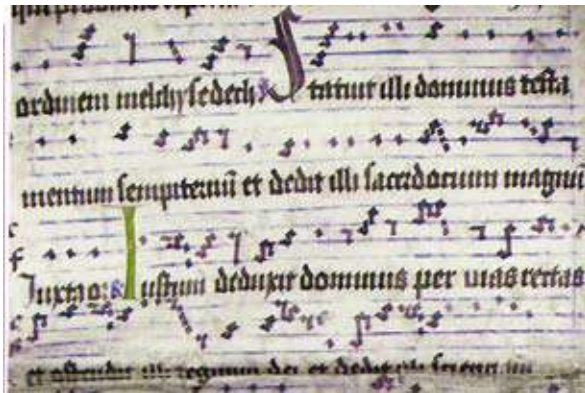 ordinem melchysedech Statuit illi dominus testa
mentum sempiternū et dedit illi sacerdocium magnū
Juxta o: Iustum deduxit dominus per uias rectas
et ostendit illi regnum dei et dedit illi